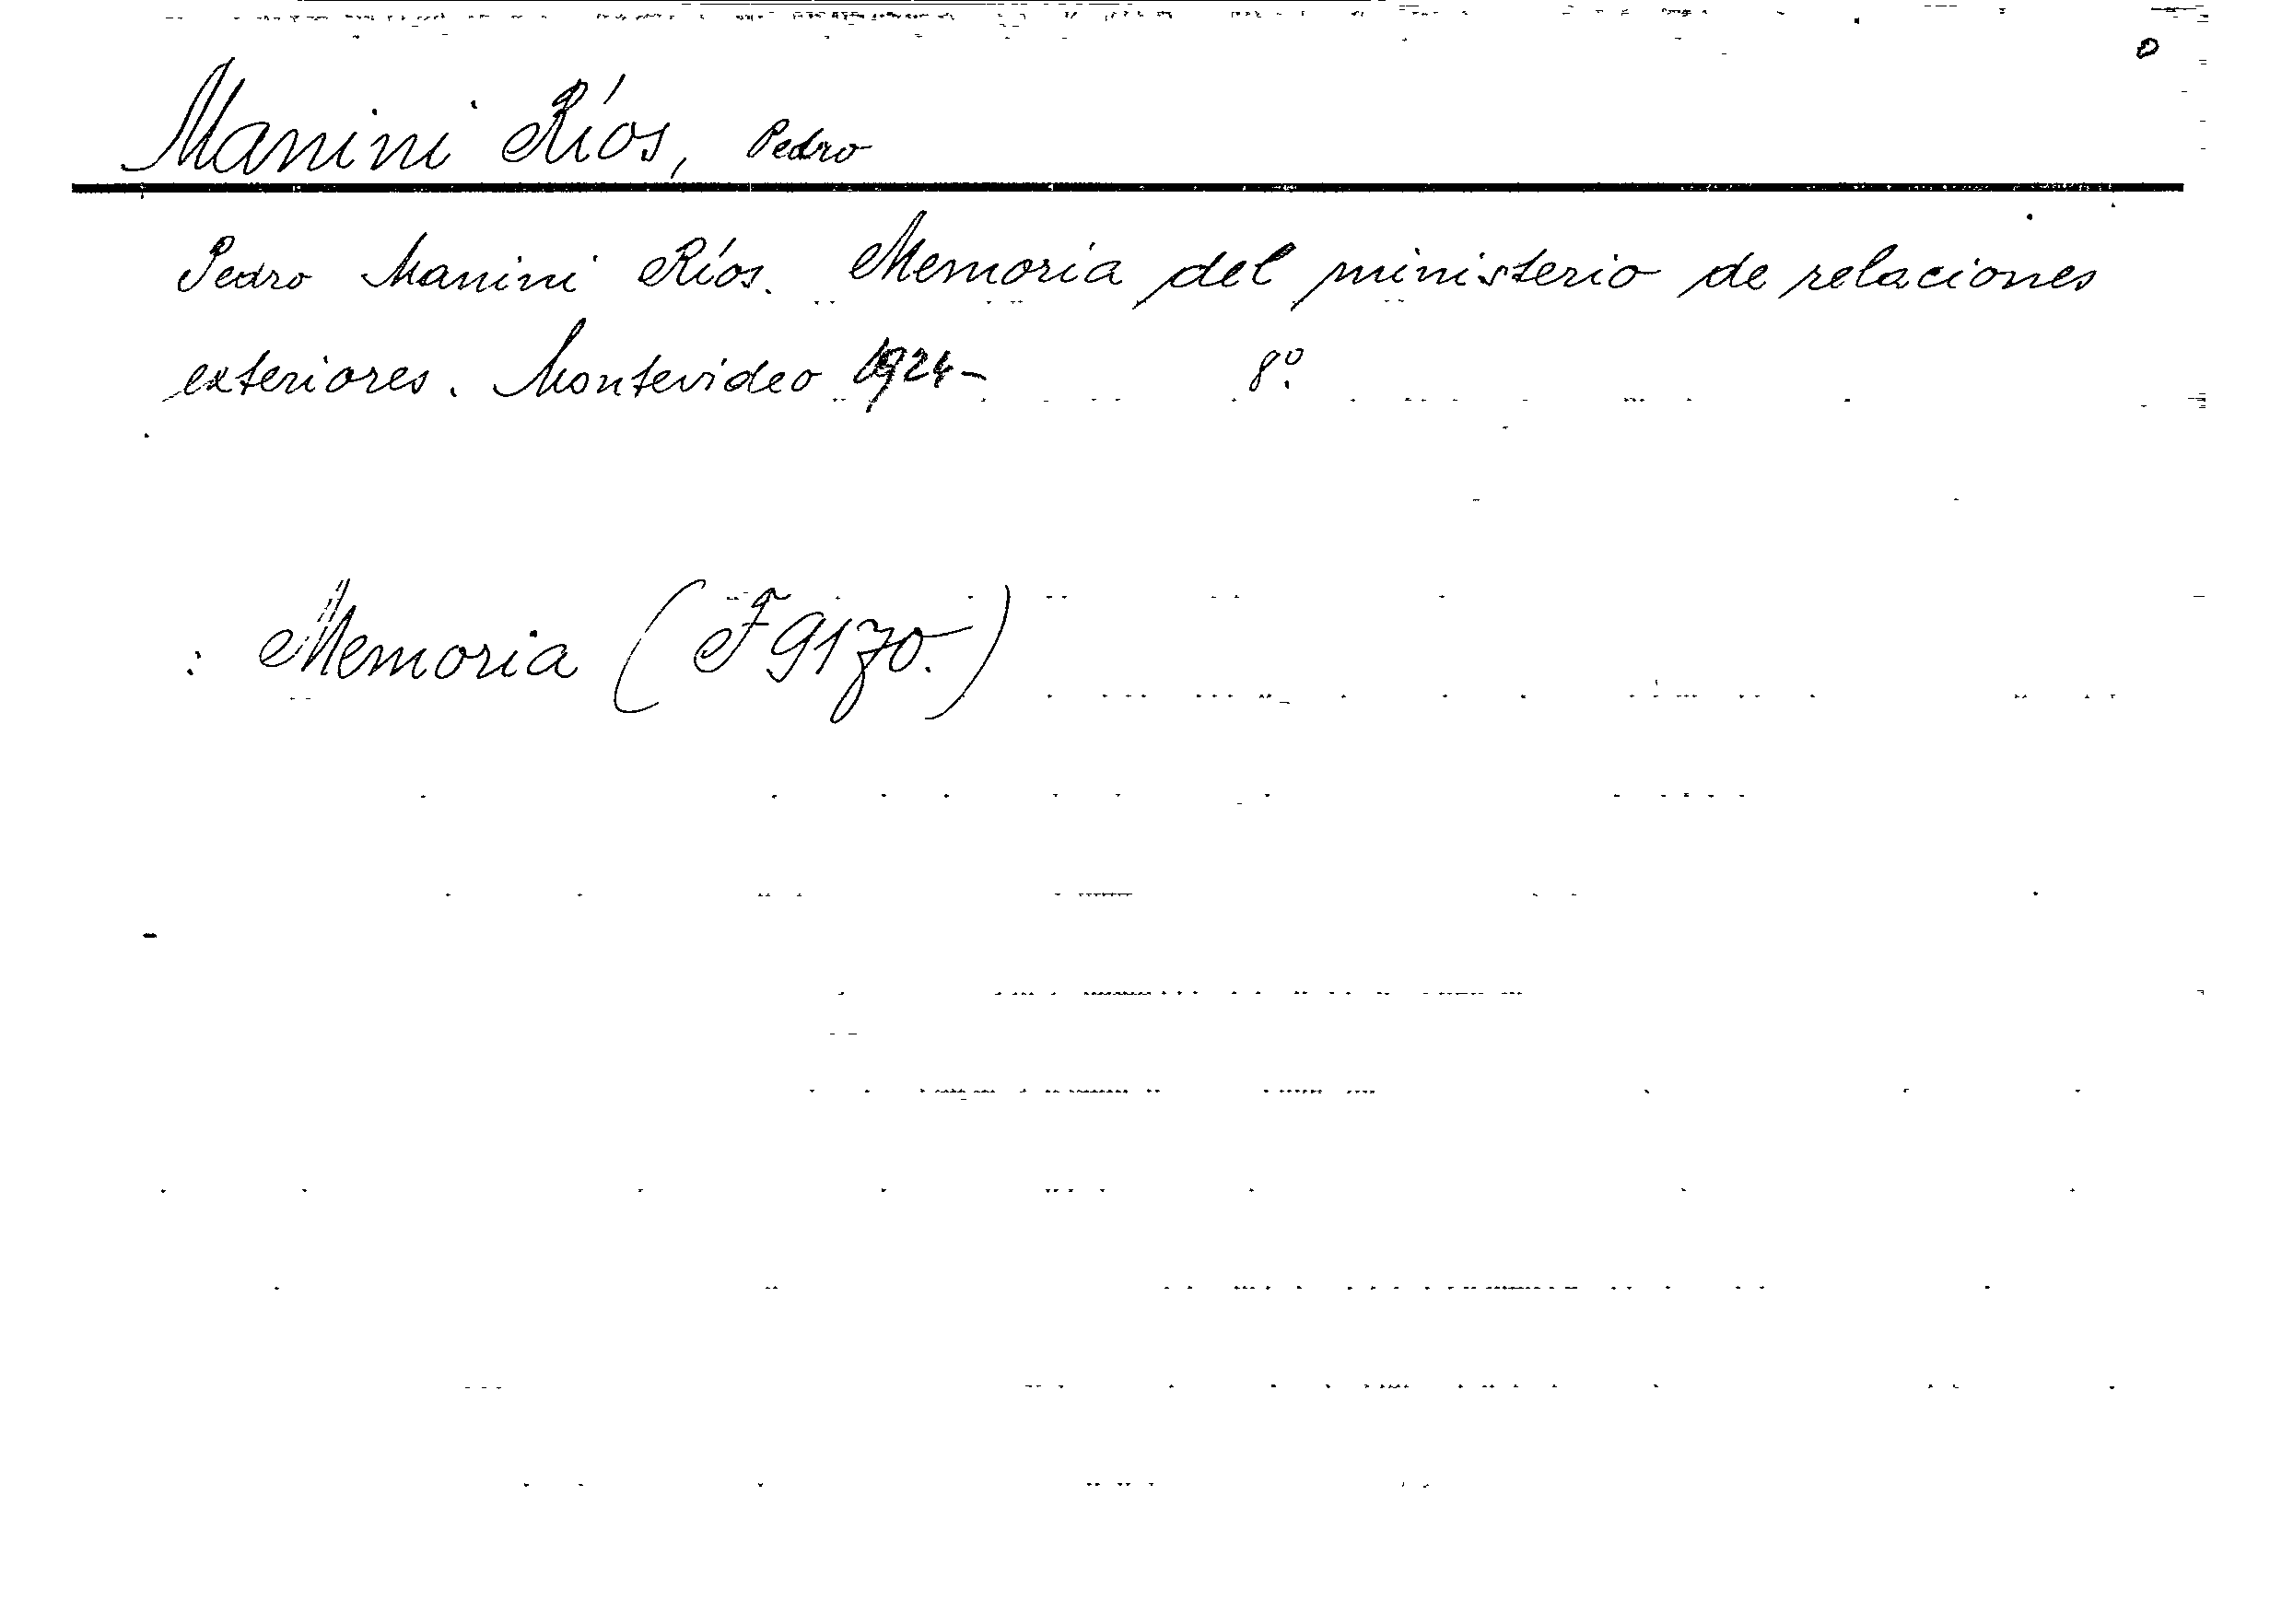 Manini Ríos, Pedro
Pedro Manini Ríos. Memoria del ministerio de relaciones
exteriores. Montevideo 1924- 8º.
: Memoria (F 9170.)